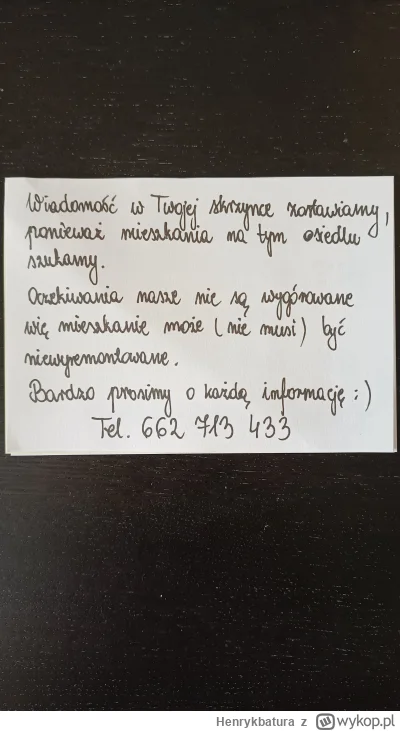 Wiadomość w Twojej skrzynce zostawiamy,
ponieważ mieszkania na tym osiedlu
szukamy.
Oczekiwania nasze nie są wygórowane
więc mieszkanie może (nie musi) być
niewyremontowane.
Bardzo prosimy o każdą informację :)
Tel. 662 713 433
Henrykbatura z wykop.pl